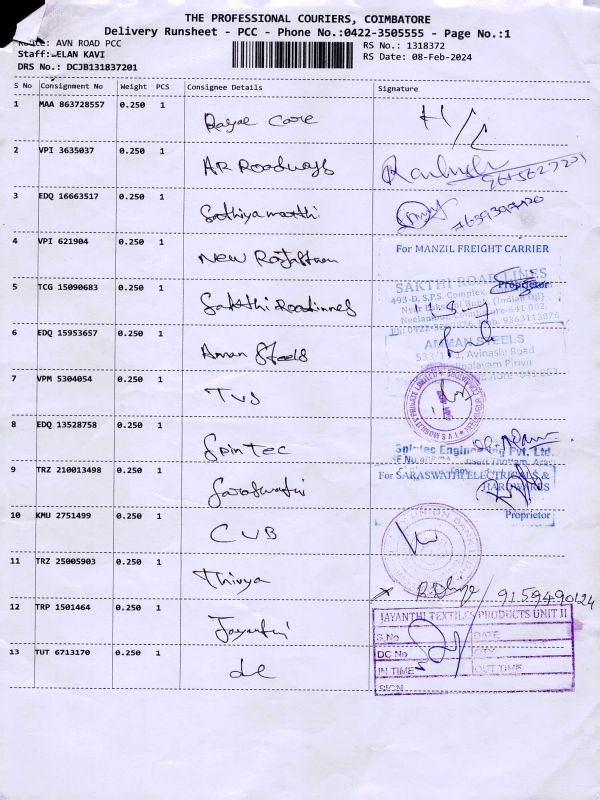 THE PROFESSIONAL COURIERS, COIMBATORE
Delivery Runsheet - PCC - Phone No.:0422-3505555 - Page No.:1
Route: AVN ROAD PCC
RS No.: 1318372
Staff: ELAN KAVI
RS Date: 08-Feb-2024
DRS No.: DCJB131837201
S No Consignment No Weight PCS Consignee Details Signature
1 MAA 863728557 0.250 1 Rayal Care H/C
2 VPI 3635037 0.250 1 AR Roadways
3 EDQ 16663517 0.250 1 Sathiyamoorthi
4 VPI 621904 0.250 1 New Rajasthan
For MANZIL FREIGHT CARRIER
Proprietor
5 TCG 15090683 0.250 1 Sakthi Roadlines
SAKTHI ROAD LINES
493-D, S.P.S. Complex,
(Indian Oil)
9363113876
6 EDQ 15953657 0.250 1 Amman Steels
AMMAN STEELS
Avinashi Road
7 VPM 5304054 0.250 1 TVS
8 EDQ 13528758 0.250 1 Spintec
Spintec Engineering Pvt. Ltd.
9 TRZ 210013498 0.250 1 Saraswathi
For SARASWATHI ELECTRICALS &
HARDWARES
Proprietor
10 KMU 2751499 0.250 1 CUB
11 TRZ 25005903 0.250 1 Thivya
12 TRP 1501464 0.250 1 Jayanthi
JAYANTHI TEXTILES PRODUCTS UNIT II
S.No DATE
DC No
IN TIME OUT TIME
SIGN
13 TUT 6713170 0.250 1